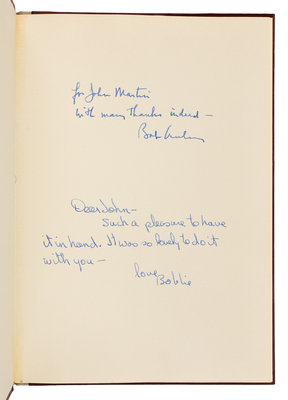 for John Martin
with many thanks indeed –
Bob
Dear John –
Such a pleasure to have
it in hand. It was so lovely to do it
with you –
love
Bobbie